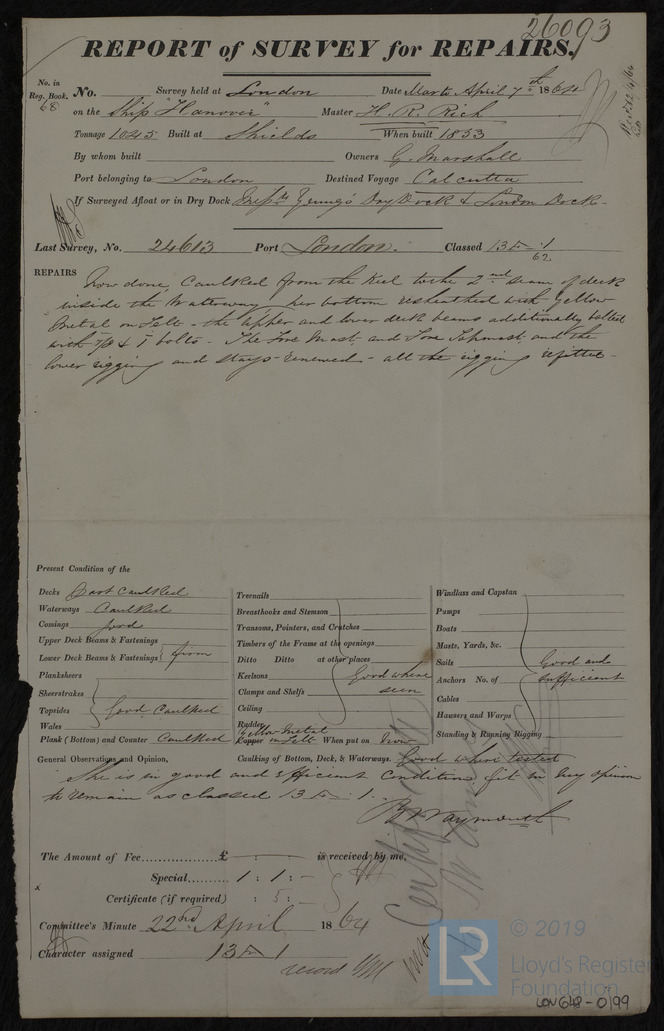 26093
REPORT of SURVEY for REPAIRS.
No. in Reg. Book. 68
No. Survey held at London Date March April 7th 1864
on the Ship "Hanover" Master H. R. Rich
Tonnage 1045 Built at Shields When built 1853
By whom built Owners G. Marshall
Port belonging to London Destined Voyage Calcutta
If Surveyed Afloat or in Dry Dock Messrs Young's Dry Dock & London Dock
Last Survey, No. 24613 Port London. Classed 13 A 1
62
REPAIRS Now done, Caulked from the Keel to the 2nd seam of deck
inside the Waterway - her bottom resheathed with Yellow
Metal on Felt - the upper and lower deck beams additionally bolted
with 7/8 & 1 bolts - The Fore Mast and Fore Topmast and the
lower rigging and stays renewed - all the rigging refitted -
Present Condition of the
Decks Part Caulked
Waterways Caulked
Comings Good
Upper Deck Beams & Fastenings
Lower Deck Beams & Fastenings firm
Planksheers
Sheerstrakes
Topsides Good Caulked
Wales
Plank (Bottom) and Counter Caulked
Treenails
Breasthooks and Stemson
Transoms, Pointers, and Crutches
Timbers of the Frame at the openings
Ditto Ditto at other places
Keelsons Good where
Clamps and Shelfs seen
Ceiling
Rudder
Yellow Metal
Copper on Felt When put on Now
Windlass and Capstan
Pumps
Boats
Masts, Yards, &c.
Sails Good and
Anchors No. of sufficient
Cables
Hawsers and Warps
Standing & Running Rigging
General Observations and Opinion, Caulking of Bottom, Deck, & Waterways. Good where tested
She is in good and efficient condition fit in my opinion
to remain as classed 13 A 1.
Waymouth
The Amount of Fee £ is received by me,
Special 1 : 1 : -
Certificate (if required) : 5 : -
Committee's Minute 22nd April 1864
Character assigned 13 A 1
record
© 2019
LR
Lloyd's Register
Foundation
LON 648-0199